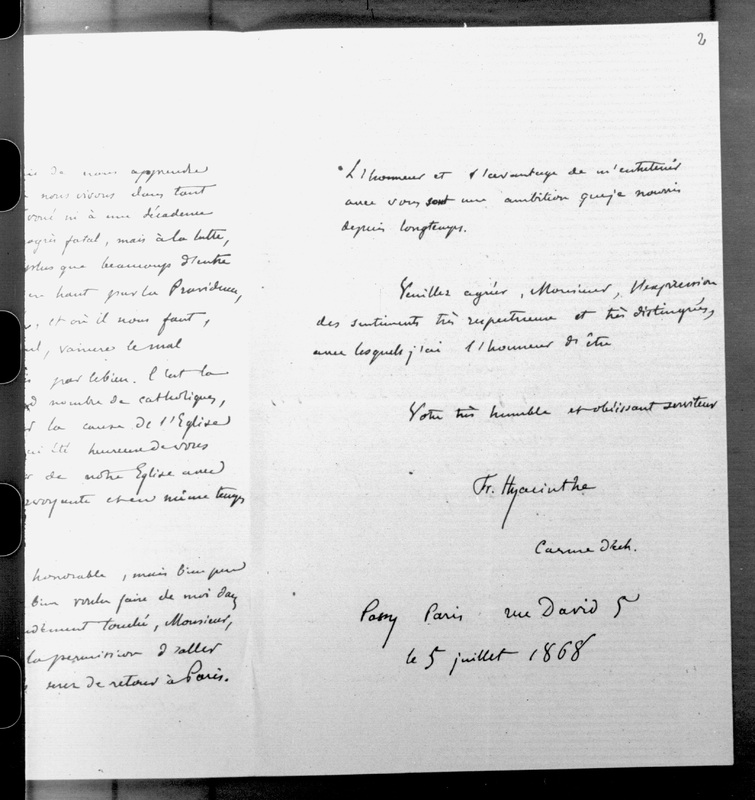 de nous apprendre
nous vivons dans tant
ni à une décadence
fatal, mais à la lutte,
plus que beaucoup d'entre
en haut par la Providence,
, et où il nous faut,
vaincre le mal
par le bien. C'est la
nombre de catholiques,
la cause de l'Eglise
été heureux de vous
de notre Eglise avec
et en même temps
honorable, mais bien peu
bien voulu faire de moi dans
touché, Monsieur,
la permission d'aller
serez de retour à Paris.
2
L'honneur et l'avantage de m'entretenir
avec vous sont une ambition que je nourris
depuis longtemps.
Veuillez agréer, Monsieur, l'expression
des sentiments très respectueux et très distingués,
avec lesquels j'ai l'honneur d'être
Votre très humble et obéissant serviteur
Fr. Hyacinthe
Carme déch.
Passy Paris rue David 5
le 5 juillet 1868